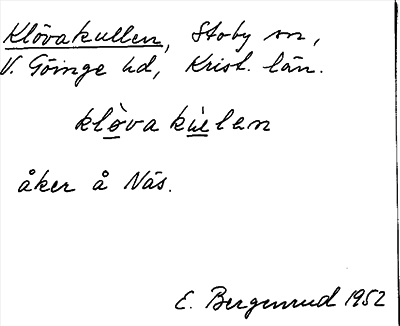 Klövakullen, Stoby sn,
V. Göinge hd, Krist. län.
klòva kùlen
åker å Näs.
E. Bergenrud 1952